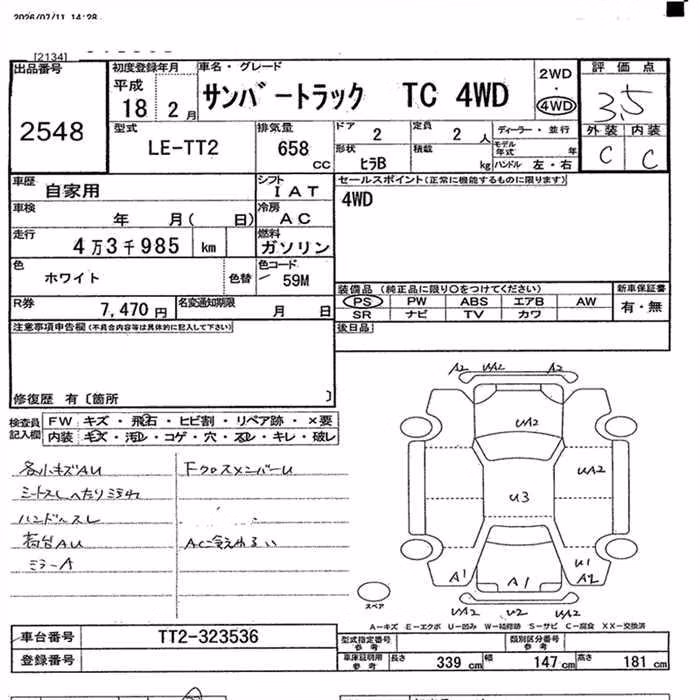 2026/07/11 14:28
[2134]
出品番号 2548
初度登録年月 平成 18 2月
車名・グレード サンバートラック TC 4WD
2WD・4WD
評価点 3.5
外装 C 内装 C
型式 LE-TT2
排気量 658 CC
ドア 2
定員 2 人
形状 ヒラB
積載 kg
ディーラー・並行
モデル年式 年
ハンドル 左・右
車歴 自家用
シフト IAT
セールスポイント(正常に機能するものに限ります)
4WD
車検 年 月( 日)
冷房 AC
走行 4万3千985 km
燃料 ガソリン
色 ホワイト
色替
色コード 59M
装備品 (純正品に限り○をつけてください)
PS PW ABS エアB AW
SR ナビ TV カワ
新車保証書 有・無
R券 7,470円
名変通知期限 月 日
後日品
注意事項申告欄(不具合内容等は具体的に記入して下さい)
修復歴 有〔箇所 〕
検査員記入欄
FW キズ・飛石・ヒビ割・リペア跡・×要
内装 キズ・汚レ・コゲ・穴・スレ・キレ・破レ
各小キズAU
FクロスメンバーU
シートスレへたり汚れ
ハンドルスレ
荷台AU
ミラーA
A2 UA2 A2
UA2
UA2
U3
U1
A1 A1 A2
UA2 U2 UA2
スペア
A-キズ E-エクボ U-凹み W-補修跡 S-サビ C-腐食 XX-交換済
車台番号 TT2-323536
登録番号
型式指定番号 参考
類別区分番号 参考
車庫証明用 参考 長さ 339 cm 幅 147 cm 高さ 181 cm